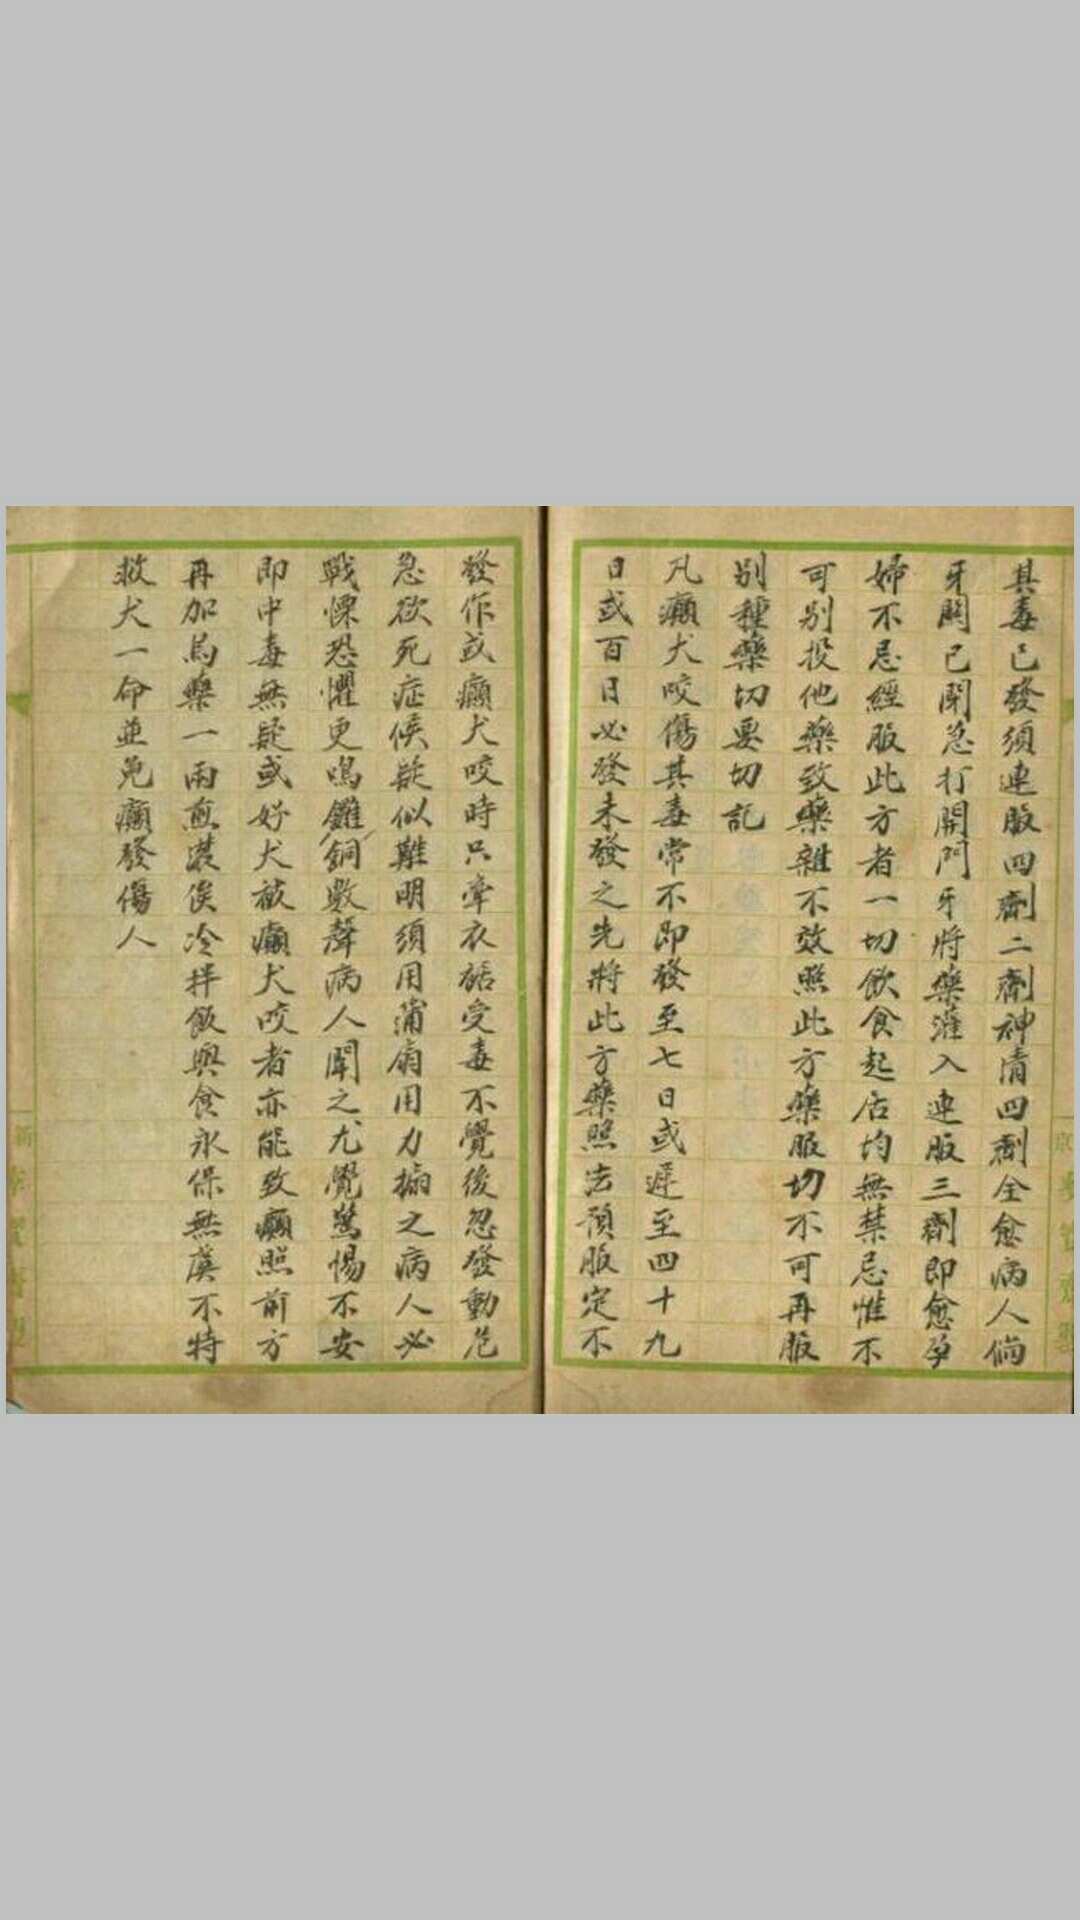 其毒已發須連服四劑二劑神清四劑全愈病人倘
牙關已閉急打開門牙將藥灌入連服三劑即愈孕
婦不忌經服此方者一切飲食起居均無禁忌惟不
可別投他藥致藥雜不效照此方藥服切不可再服
別種藥切要切記
凡癲犬咬傷其毒常不即發至七日或遲至四十九
日或百日必發未發之先將此方藥照法預服定不
發作或癲犬咬時只牽衣裾受毒不覺後忽發動危
急欲死症候疑似難明須用蒲扇用力搧之病人必
戰慄恐懼更鳴鑼銅數聲病人聞之尤覺驚惕不安
即中毒無疑或好犬被癲犬咬者亦能致癲照前方
再加烏藥一兩煎濃俟冷拌飯與食永保無虞不特
救犬一命並免癲發傷人